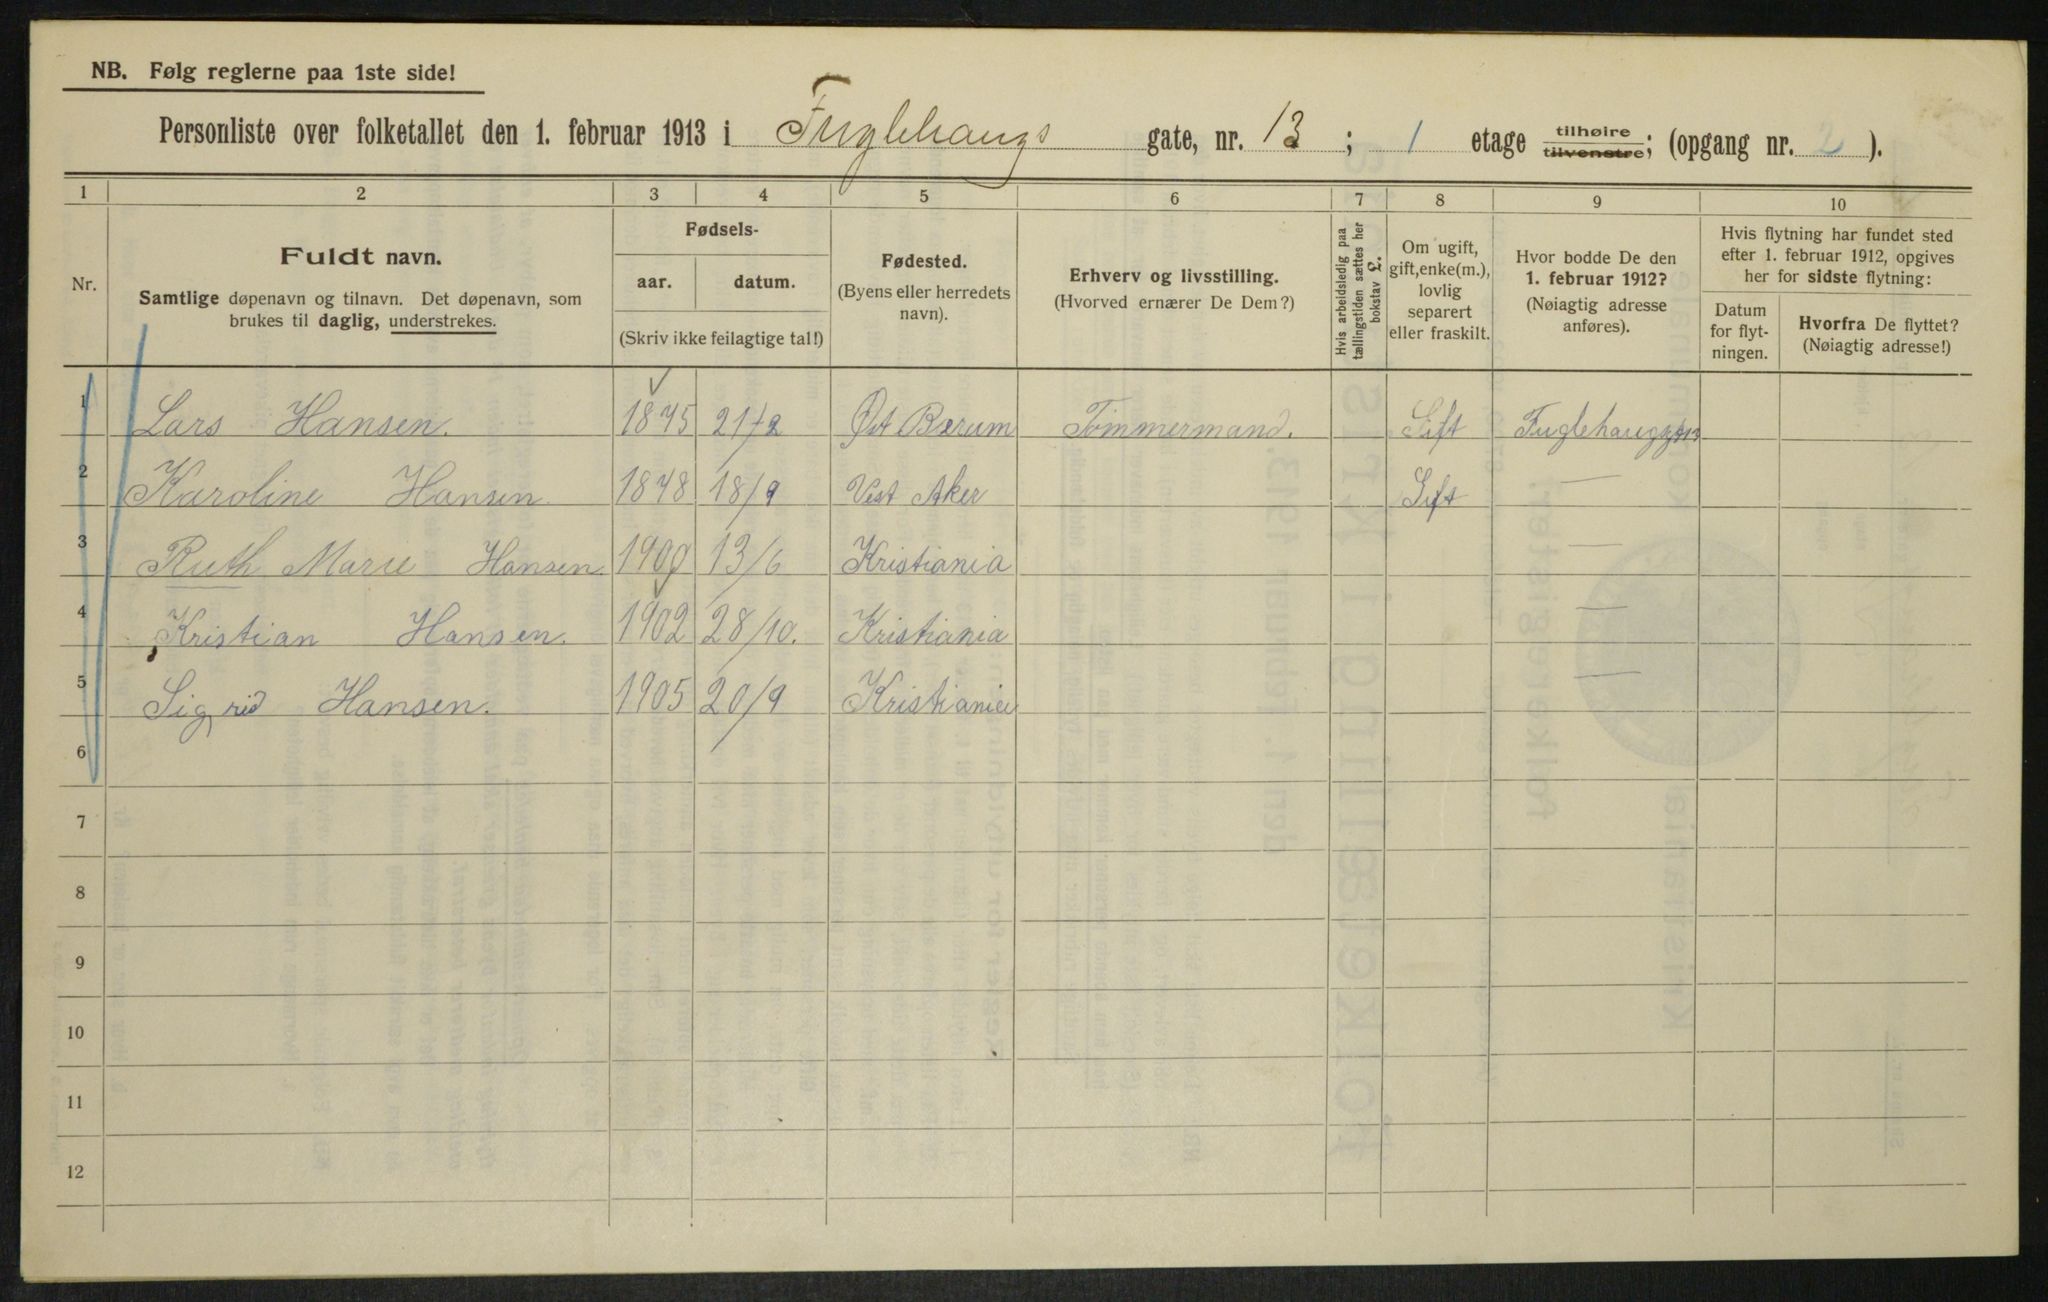 NB. Følg reglerne paa 1ste side!
Personliste over folketallet den 1. februar 1913 i Fuglehaugs gate, nr. 13 ; 1 etage tilhøire tilvenstre; (opgang nr. 2 ).
1 2 3 4 5 6 7 8 9 10
Nr.
Fuldt navn.
Samtlige døpenavn og tilnavn. Det døpenavn, som
brukes til daglig, understrekes.
Fødsels-
aar. datum.
(Skriv ikke feilagtige tal!)
Fødested.
(Byens eller herredets
navn).
Erhverv og livsstilling.
(Hvorved ernærer De Dem?)
Hvis arbeidsledig paa
tællingstiden sættes her
bokstav L.
Om ugift,
gift, enke(m.),
lovlig
separert
eller fraskilt.
Hvor bodde De den
1. februar 1912?
(Nøiagtig adresse
anføres).
Hvis flytning har fundet sted
efter 1. februar 1912, opgives
her for sidste flytning:
Datum
for flyt-
ningen.
Hvorfra De flyttet?
(Nøiagtig adresse!)
1 Lars Hansen. 1845 21/2 Øst Bærum Tømmermand. Gift
2 Karoline Hansen 1848 18/9 Vest Aker Gift —
3 Ruth Marie Hansen. 1900 13/6 Kristiania —
4 Kristian Hansen. 1902 28/10. Kristiania —
5 Sigrid Hansen. 1905 20/9 Kristiania —
6
7
8
9
10
11
12